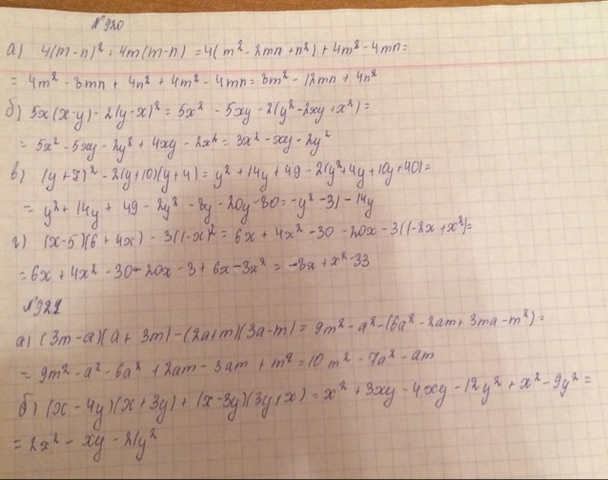 №920
а) 4(m-n)² + 4m(m-n) = 4(m² - 2mn + n²) + 4m² - 4mn =
= 4m² - 8mn + 4n² + 4m² - 4mn = 8m² - 12mn + 4n²
б) 5x(x-y) - 2(y-x)² = 5x² - 5xy - 2(y² - 2xy + x²) =
= 5x² - 5xy - 2y² + 4xy - 2x² = 3x² - xy - 2y²
в) (y+7)² - 2(y+10)(y+4) = y² + 14y + 49 - 2(y² + 4y + 10y + 40) =
= y² + 14y + 49 - 2y² - 8y - 20y - 80 = -y² - 31 - 14y
г) (x-5)(6+4x) - 3(1-x)² = 6x + 4x² - 30 - 20x - 3(1-2x+x²) =
= 6x + 4x² - 30 - 20x - 3 + 6x - 3x² = -8x + x² - 33
№921
а) (3m-a)(a+3m) - (2a+m)(3a-m) = 9m² - a² - (6a² - 2am + 3ma - m²) =
= 9m² - a² - 6a² + 2am - 3am + m² = 10m² - 7a² - am
б) (x-4y)(x+3y) + (x-3y)(3y+x) = x² + 3xy - 4xy - 12y² + x² - 9y² =
= 2x² - xy - 21y²